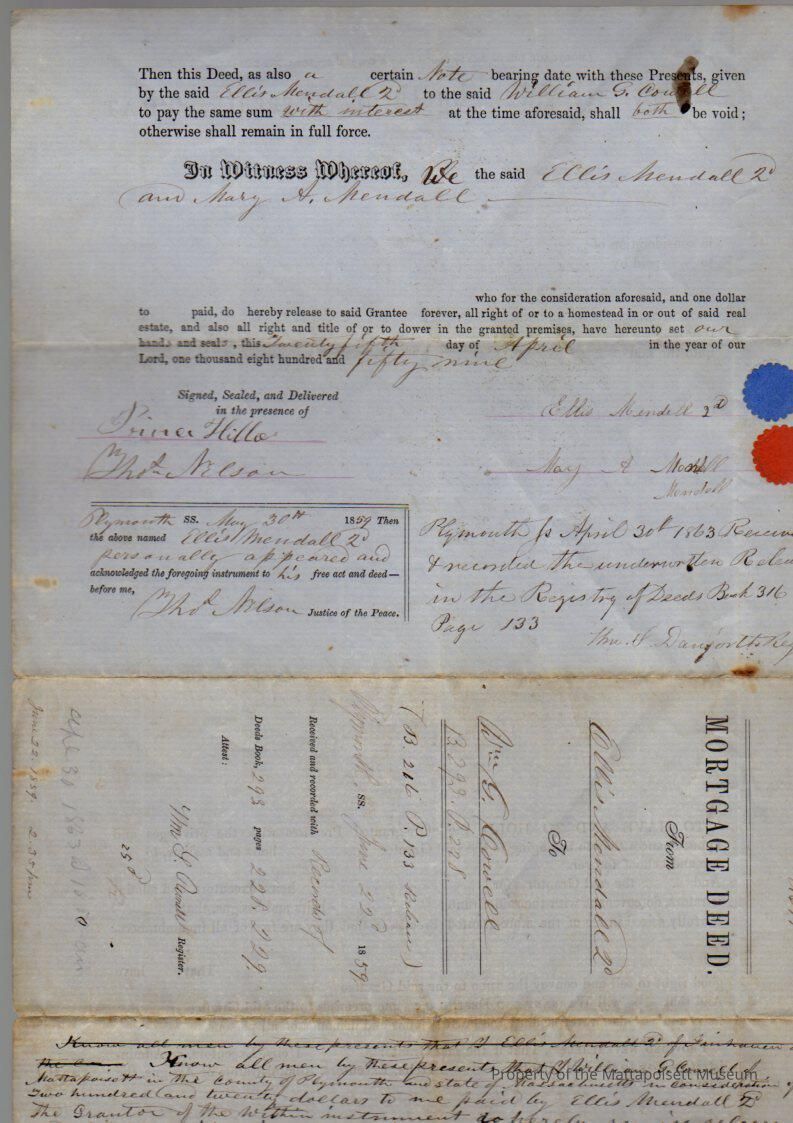 Then this Deed, as also a certain Note bearing date with these Presents, given
by the said Ellis Mendall 2d to the said William G. Cowell
to pay the same sum with interest at the time aforesaid, shall both be void;
otherwise shall remain in full force.
In Witness Whereof, We the said Ellis Mendall 2d
and Mary A. Mendall
who for the consideration aforesaid, and one dollar
to paid, do hereby release to said Grantee forever, all right of or to a homestead in or out of said real
estate, and also all right and title of or to dower in the granted premises, have hereunto set our
hands and seals, this Twenty fifth day of April in the year of our
Lord, one thousand eight hundred and fifty nine
Signed, Sealed, and Delivered
in the presence of
Ellis Mendell 2D
Thos. Nelson
May A
Mendell
Plymouth SS. May 30th 1859 Then
the above named Ellis Mendall 2d
personally appeared and
acknowledged the foregoing instrument to his free act and deed—
before me,
Thos Nelson Justice of the Peace.
Plymouth Ss April 30th 1863
& recorded the underwritten
in the Registry of Deeds Book 316
Page 133
MORTGAGE DEED.
From
Ellis Mendall 2d
To
Wm G. Cowell
B. 293. P. 228
(B. 216 P. 133
Plymouth SS. June 22d 1859.
Received and recorded with Records of
Deeds Book, 293 pages 228 229.
Attest:
Register.
June 22. 1859.
Know all men by these presents that I Ellis Mendall 2d of Fairhaven
Know all men by these presents that I William G. Cowell of
Mattapoisett in the County of Plymouth and state of Massachusetts in consideration of
Two hundred and twenty dollars to me paid by Ellis Mendall 2D
the Grantor of the within instrument do hereby
Property of the Mattapoisett Museum